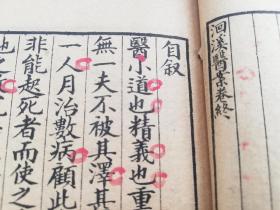 洄溪醫案卷終
自叙
醫小道也精義也重
無一夫不被其澤甚
一人月治數病顧此
非能起死者而使之